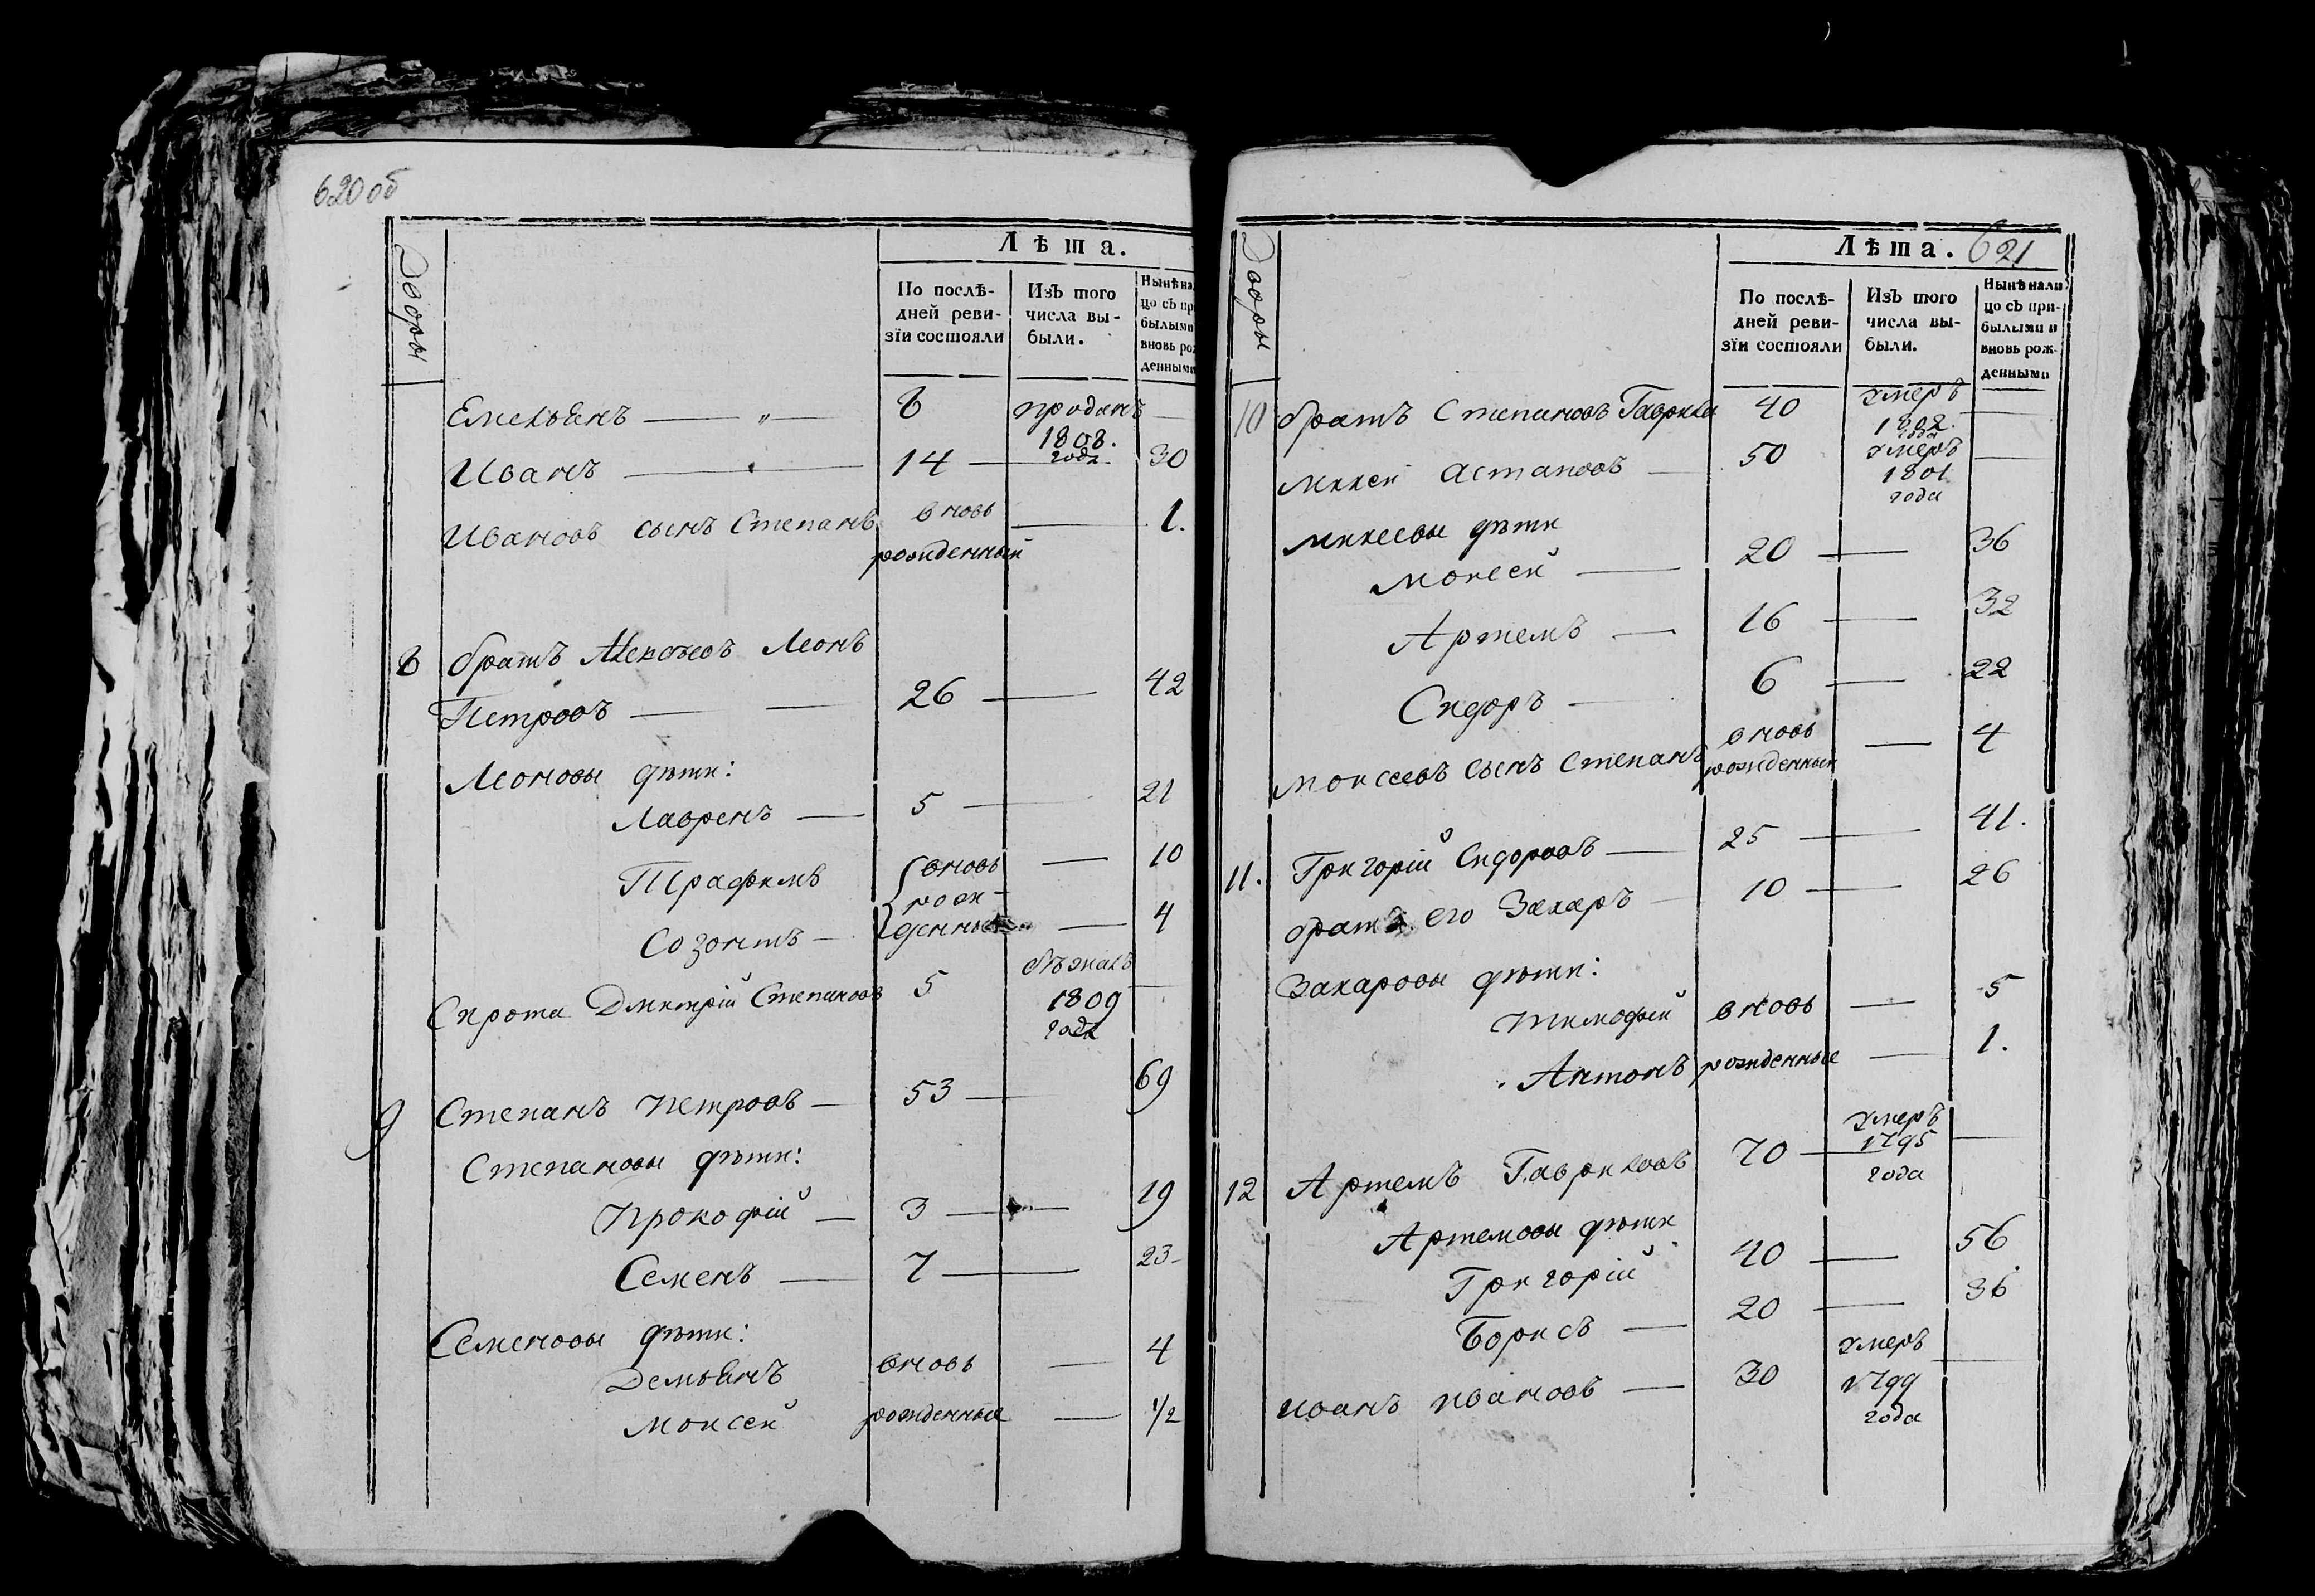 620 об
Дворы
Лѣта.
По послѣ-
дней реви-
зїи состояли
Изъ того
числа вы-
были.
Нынѣ на
цо съ пр
былыми
вновь ро
денными
Емельянъ — „ — 8 проданъ —
1808.
года
Иванъ — „ — 14 — 30
Ивановъ сынъ Степанъ вновь — 1.
рожденный
8 братъ Алексѣевъ Леонъ
Петровъ — — 26 — 42
Леоновы дѣти:
Лавренъ — 5 — 21
Трафимъ вновь — 10
рож-
Созонтъ — денные — 4
Сирота Дмитрій Степановъ 5 бѣжалъ —
1809
года
9 Степанъ Петровъ — 53 — 69
Степановы дѣти:
Прокофій — 3 — 19
Семенъ — 7 — 23
Семеновы дѣти:
Демьянъ вновь — 4
Моисей рожденные — 1/2
621
Дворы
Лѣта.
По послѣ-
дней реви-
зїи состояли
Изъ того
числа вы-
были.
Нынѣ нали
цо съ при-
былыми и
вновь рож-
денными
10 братъ Степановъ Гаврила 40 умеръ —
1802.
года
Михей Астаповъ — 50 умеръ —
1801
года
Михеевы дѣти
Моисей — 20 — 36
Артемъ — 16 — 32
Сидоръ — 6 — 22
Моисеевъ сынъ Степанъ вновь — 4
рожденный
11. Григорій Сидоровъ — 25 — 41.
братъ его Захаръ — 10 — 26
Захаровы дѣти:
Тимофей вновь — 5
Антонъ рожденные — 1.
12 Артемъ Гавриловъ 70 — умеръ —
1795
года
Артемовы дѣти
Григорій 40 — 56
Борисъ — 20 — 36
Иванъ Ивановъ — 30 умеръ —
1799
года